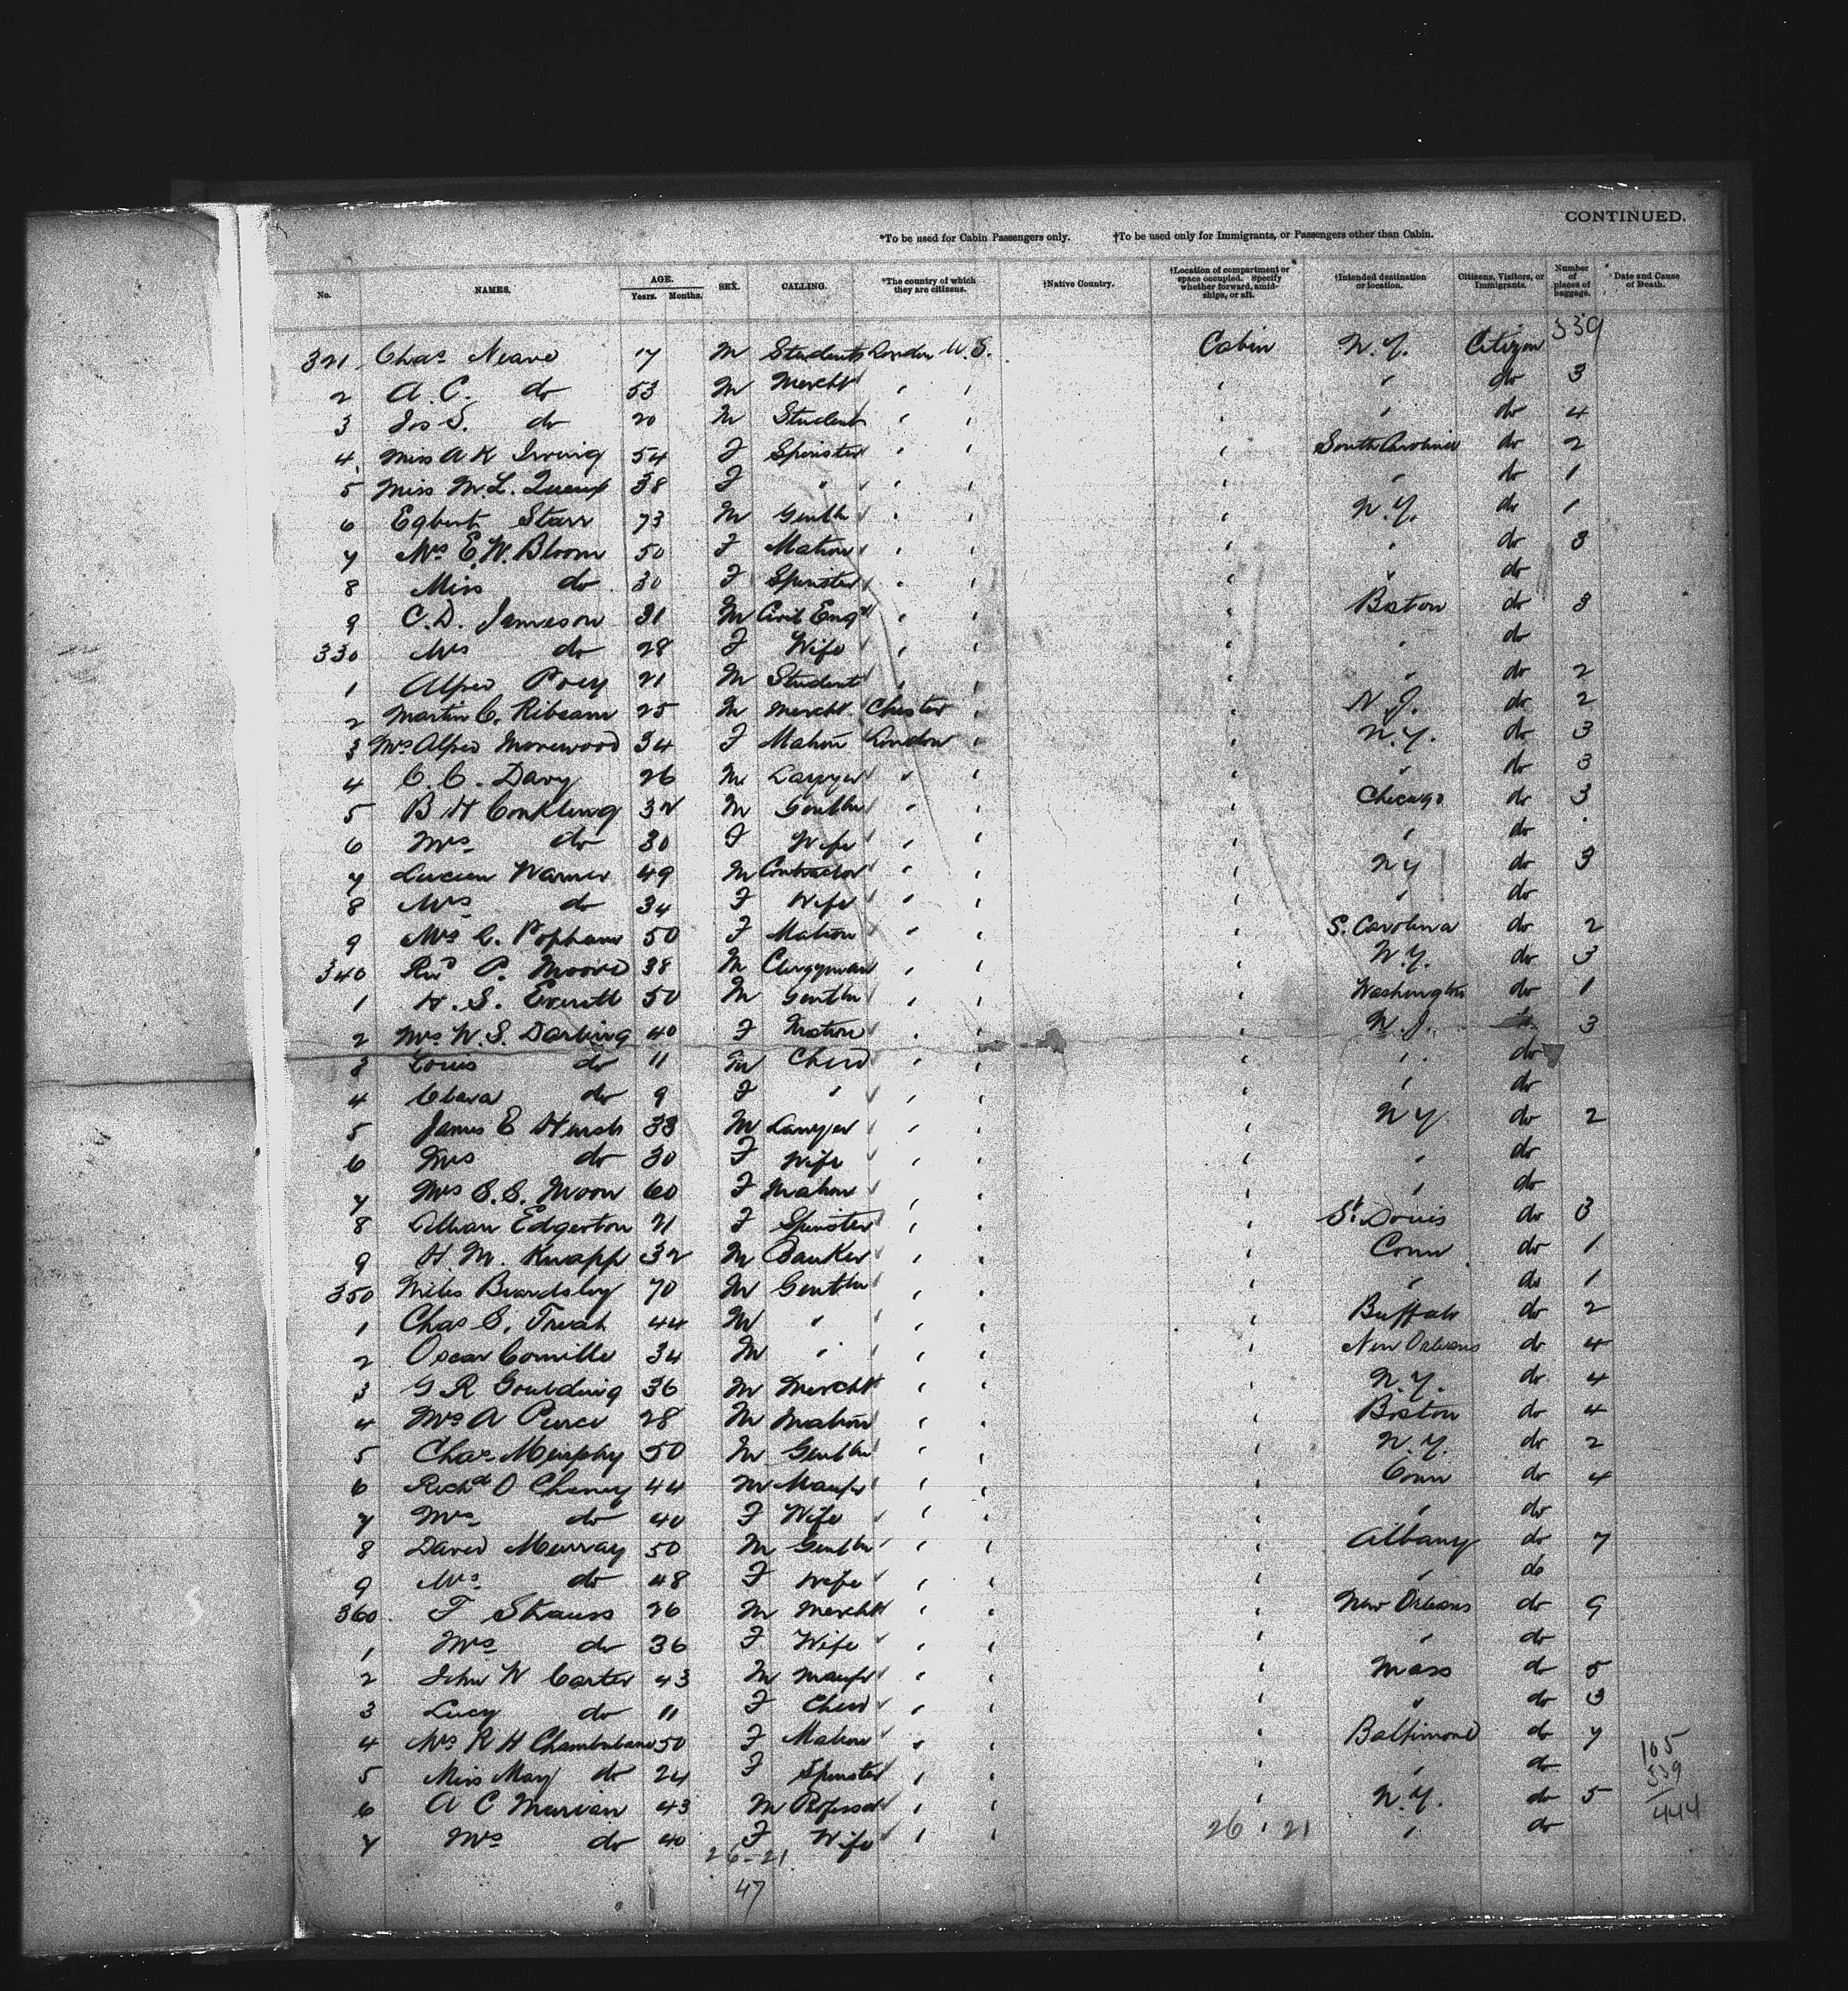 CONTINUED.
*To be used for Cabin Passengers only. †To be used only for Immigrants, or Passengers other than Cabin.
No. NAMES. AGE. Years. Months. SEX. CALLING. *The country of which they are citizens. †Native Country. †Location of compartment or space occupied. Specify whether forward, amidships, or aft. †Intended destination or location. Citizens, Visitors, or Immigrants. Number of pieces of baggage. Date and Cause of Death.
339
321 Chas Neave 17 M Student London U.S. Cabin N.Y. Citizen
2 A. C. do 53 M Mercht " " " " do 3
3 Jos S. do 20 M Student " " " " do 4
4 Miss A K Irving 54 F Spinster " " " South Carolina do 2
5 Miss M. L. 38 F " " " " " do 1
6 Egbert Starr 73 M Gentln " " " N.Y. do 1
7 Mrs E. W. Bloom 50 F Matron " " " " do 3
8 Miss do 30 F Spinster " " " " do
9 C. D. Jameson 31 M Civil Engr " " " Boston do 3
330 Mrs do 28 F Wife " " " " do
1 Alfred Poey 21 M Student " " " " do 2
2 Martin C. Ribsam 25 M Mercht Chester " " N.J. do 2
3 Mrs Alfred Morewood 34 F Matron London " " N.Y. do 3
4 C. C. Davy 26 M Lawyer " " " " do 3
5 B H Conkling 32 M Gentln " " " Chicago do 3
6 Mrs do 30 F Wife " " " " do
7 Lucien Warner 49 M Contractor " " " NY do 3
8 Mrs do 34 F Wife " " " " do
9 Mrs C. Popham 50 F Matron " " " S. Carolina do 2
340 Revd P. Moore 38 M Clergyman " " " N.Y. do 3
1 H. S. Everett 50 M Gentln " " " Washington do 1
2 Mrs W. S. Darling 40 F Matron " " " N.J. do 3
3 Louis do 11 M Child " " " " do
4 Clara do 9 F " " " " " do
5 James E Hersh 33 M Lawyer " " " NY do 2
6 Mrs do 30 F Wife " " " " do
7 Mrs S. S. Moon 60 F Matron " " " " do
8 Lillian Edgerton 21 F Spinster " " " St Louis do 3
9 H. M. Knapp 32 M Banker " " " Conn do 1
350 Miles Beardsley 70 M Gentln " " " " do 1
1 Chas S. Treat 44 M " " " " Buffalo do 2
2 Oscar 34 M " " " " New Orleans do 4
3 G R Goulding 36 M Mercht " " " N.Y. do 4
4 Mrs A Pierce 28 M Matron " " " Boston do 4
5 Chas Murphy 50 M Gentln " " " N.Y. do 2
6 Richd O Cheney 44 M Manfr " " " Conn do 4
7 Mrs do 40 F Wife " " " " do
8 David Murray 50 M Gentln " " " Albany do 7
9 Mrs do 48 F Wife " " " " do
360 F Strauss 26 M Mercht " " " New Orleans do 9
1 Mrs do 36 F Wife " " " " do
2 John W Carter 43 M Manfr " " " Mass do 5
3 Lucy do 11 F Child " " " " do 3
4 Mrs R H Chamberlane 50 F Matron " " " Baltimore do 7
5 Miss May do 24 F Spinster " " " " do
6 A C Marvin 43 M Professor " " " N.Y. do 5
7 Mrs do 40 F Wife " " " " do
105
339
444
26 21
26-21
47